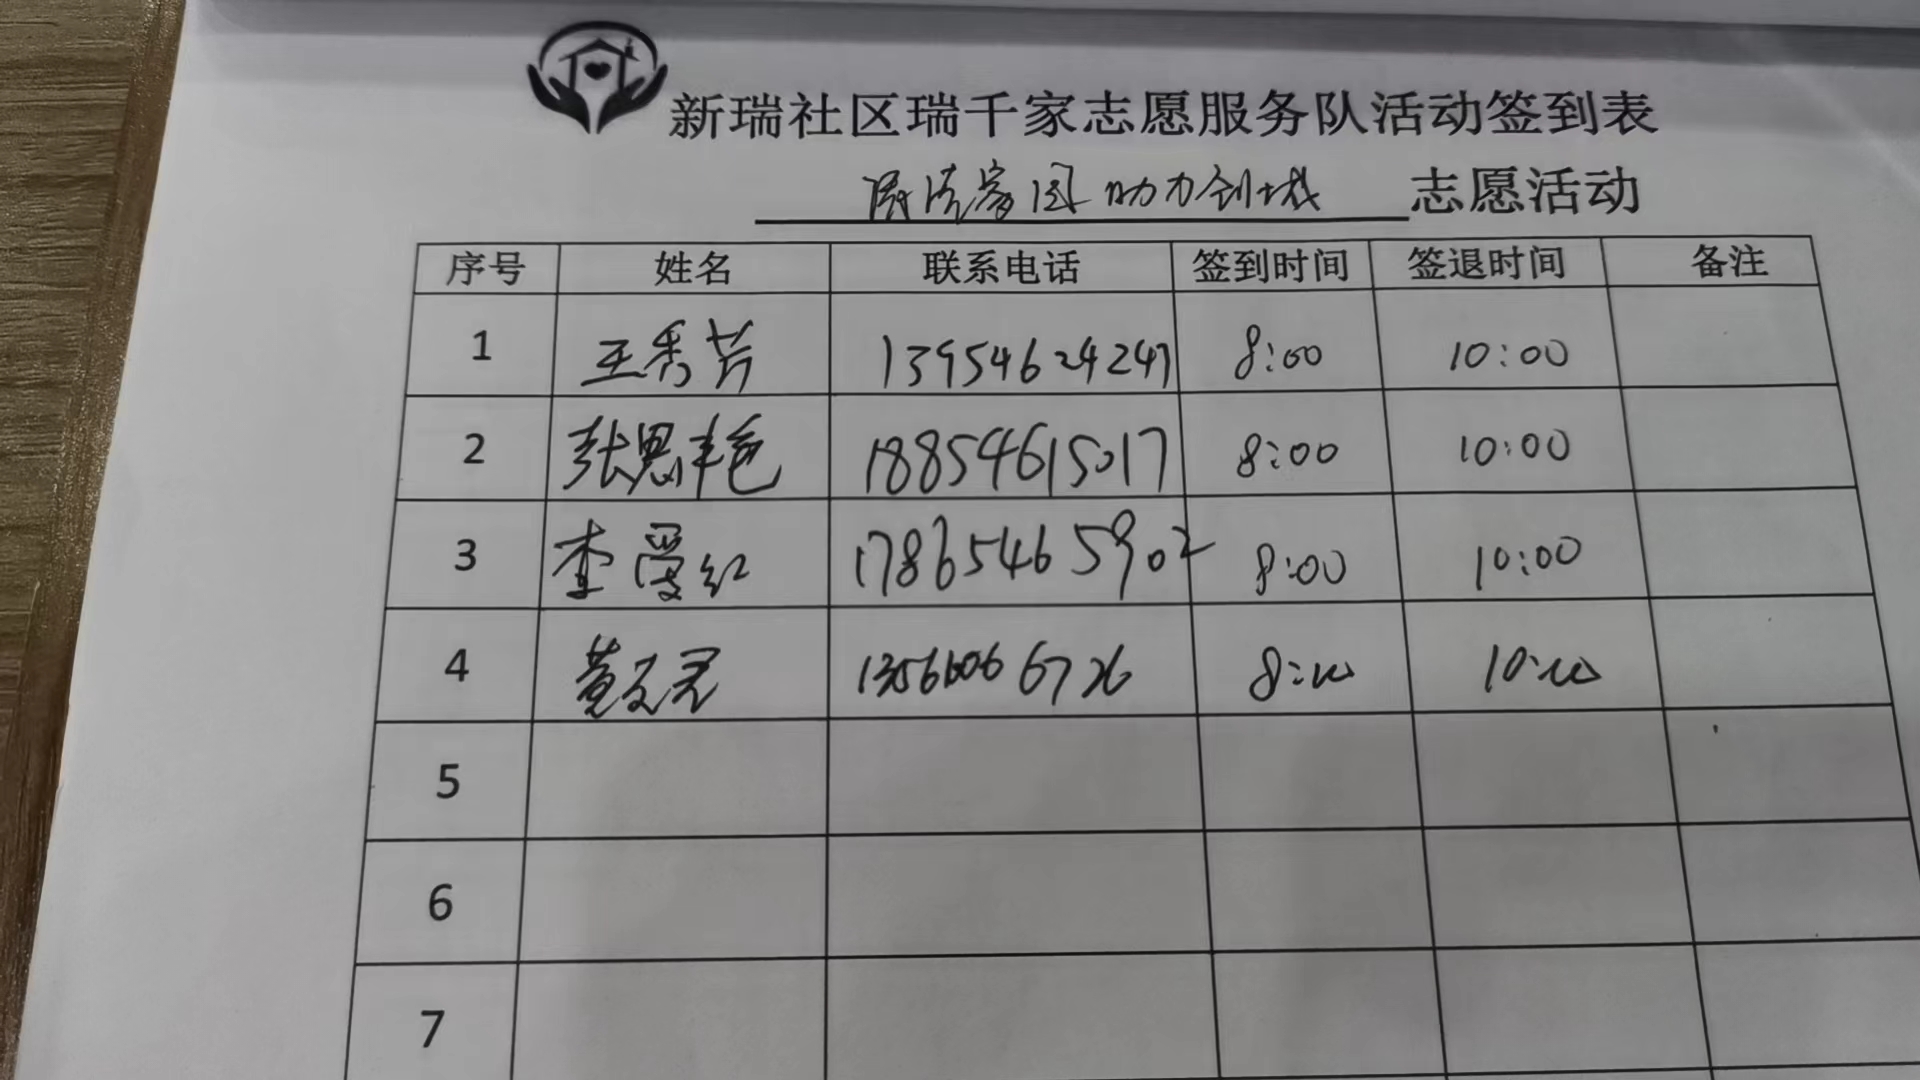 新瑞社区瑞千家志愿服务队活动签到表
清洁家园 助力创城 志愿活动
序号 姓名 联系电话 签到时间 签退时间 备注
1 王秀芳 13954624247 8:00 10:00
2 张恩艳 18854615017 8:00 10:00
3 李爱红 17865465902 8:00 10:00
4 黄文灵 13561066726 8:00 10:00
5
6
7